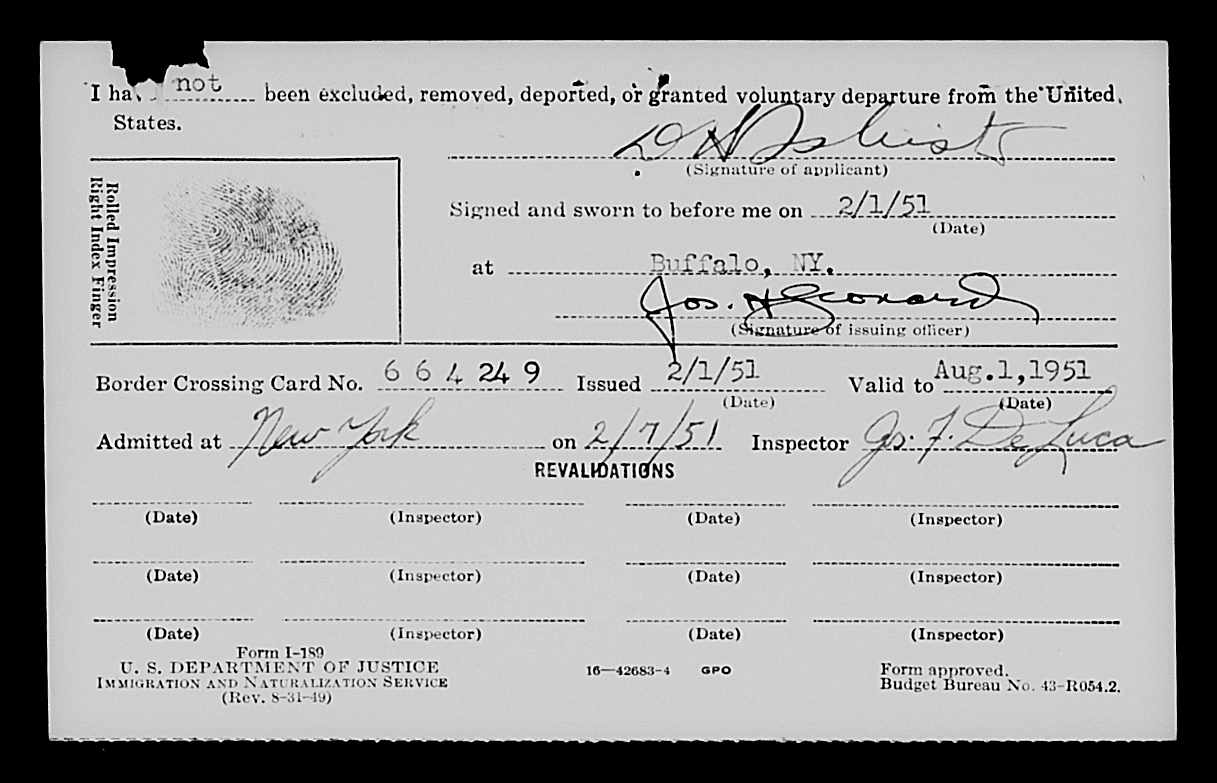 I hav not been excluded, removed, deported, or granted voluntary departure from the United
States.
(Signature of applicant)
Rolled Impression
Right Index Finger
Signed and sworn to before me on 2/1/51
(Date)
at Buffalo, NY.
Jos. H Leonard
(Signature of issuing officer)
Border Crossing Card No. 664249 Issued 2/1/51 Valid to Aug.1,1951
(Date) (Date)
Admitted at New York on 2/7/51 Inspector Gs. F. De Luca
REVALIDATIONS
(Date) (Inspector) (Date) (Inspector)
(Date) (Inspector) (Date) (Inspector)
(Date) (Inspector) (Date) (Inspector)
Form I-189
U. S. DEPARTMENT OF JUSTICE
IMMIGRATION AND NATURALIZATION SERVICE
(Rev. 8-31-49)
16—42683-4 GPO
Form approved.
Budget Bureau No. 43-R054.2.